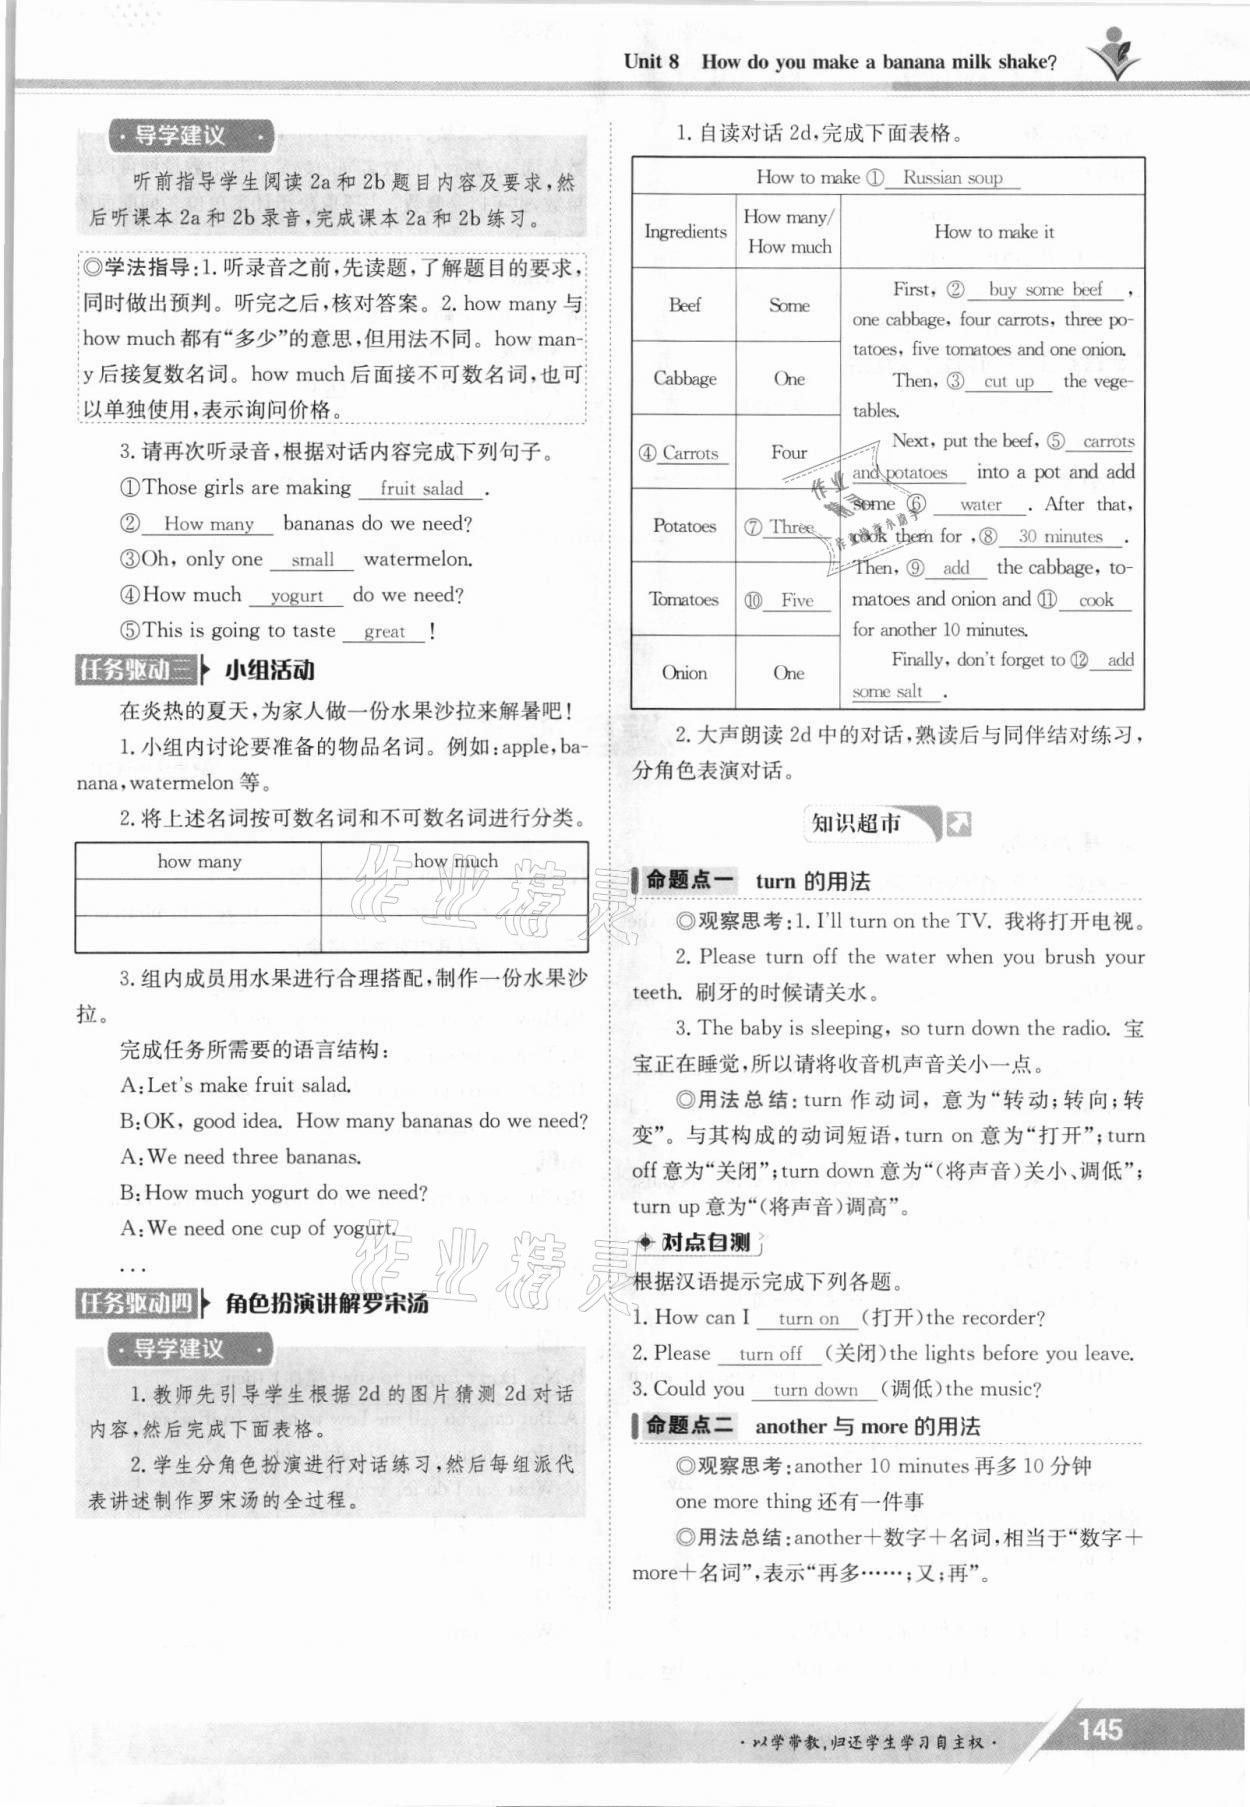 Unit 8 How do you make a banana milk shake?
·导学建议·
听前指导学生阅读 2a 和 2b 题目内容及要求,然
后听课本 2a 和 2b 录音,完成课本 2a 和 2b 练习。
◎学法指导:1. 听录音之前,先读题,了解题目的要求,
同时做出预判。听完之后,核对答案。2. how many 与
how much 都有“多少”的意思,但用法不同。how man-
y 后接复数名词。how much 后面接不可数名词,也可
以单独使用,表示询问价格。
3. 请再次听录音,根据对话内容完成下列句子。
①Those girls are making fruit salad .
② How many bananas do we need?
③Oh, only one small watermelon.
④How much yogurt do we need?
⑤This is going to taste great !
任务驱动三 小组活动
在炎热的夏天,为家人做一份水果沙拉来解暑吧!
1. 小组内讨论要准备的物品名词。例如:apple,ba-
nana,watermelon 等。
2. 将上述名词按可数名词和不可数名词进行分类。
how many how much
3. 组内成员用水果进行合理搭配,制作一份水果沙
拉。
完成任务所需要的语言结构:
A:Let's make fruit salad.
B:OK, good idea. How many bananas do we need?
A:We need three bananas.
B:How much yogurt do we need?
A:We need one cup of yogurt.
...
任务驱动四 角色扮演讲解罗宋汤
·导学建议·
1. 教师先引导学生根据 2d 的图片猜测 2d 对话
内容,然后完成下面表格。
2. 学生分角色扮演进行对话练习,然后每组派代
表讲述制作罗宋汤的全过程。
1. 自读对话 2d,完成下面表格。
How to make ① Russian soup
Ingredients How many/ How to make it
How much
Beef Some
Cabbage One
④ Carrots Four
Potatoes ⑦ Three
Tomatoes ⑩ Five
Onion One
First, ② buy some beef ,
one cabbage, four carrots, three po-
tatoes, five tomatoes and one onion.
Then, ③ cut up the vege-
tables.
Next, put the beef, ⑤ carrots
and potatoes into a pot and add
some ⑥ water . After that,
cook them for ,⑧ 30 minutes .
Then, ⑨ add the cabbage, to-
matoes and onion and ⑪ cook
for another 10 minutes.
Finally, don't forget to ⑫ add
some salt .
2. 大声朗读 2d 中的对话,熟读后与同伴结对练习,
分角色表演对话。
知识超市
命题点一 turn 的用法
◎观察思考:1. I'll turn on the TV. 我将打开电视。
2. Please turn off the water when you brush your
teeth. 刷牙的时候请关水。
3. The baby is sleeping, so turn down the radio. 宝
宝正在睡觉,所以请将收音机声音关小一点。
◎用法总结:turn 作动词, 意为“转动;转向;转
变”。与其构成的动词短语,turn on 意为“打开”;turn
off 意为“关闭”;turn down 意为“(将声音)关小、调低”;
turn up 意为“(将声音)调高”。
对点自测
根据汉语提示完成下列各题。
1. How can I turn on (打开)the recorder?
2. Please turn off (关闭)the lights before you leave.
3. Could you turn down (调低)the music?
命题点二 another 与 more 的用法
◎观察思考:another 10 minutes 再多 10 分钟
one more thing 还有一件事
◎用法总结:another＋数字＋名词,相当于“数字＋
more＋名词”,表示“再多……;又;再”。
·以学带教,归还学生学习自主权·
145
作业精灵
作业精灵